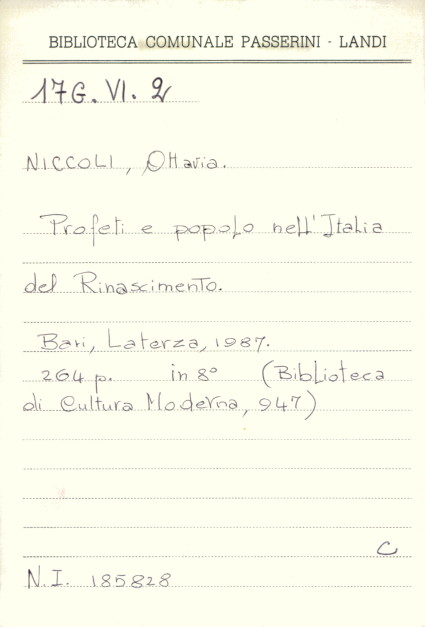 BIBLIOTECA COMUNALE PASSERINI - LANDI
17G. VI. 2
NICCOLI, Ottavia.
Profeti e popolo nell'Italia
del Rinascimento.
Bari, Laterza, 1987.
264 p. in 8° (Biblioteca
di Cultura Moderna, 947)
C
N.I. 185828